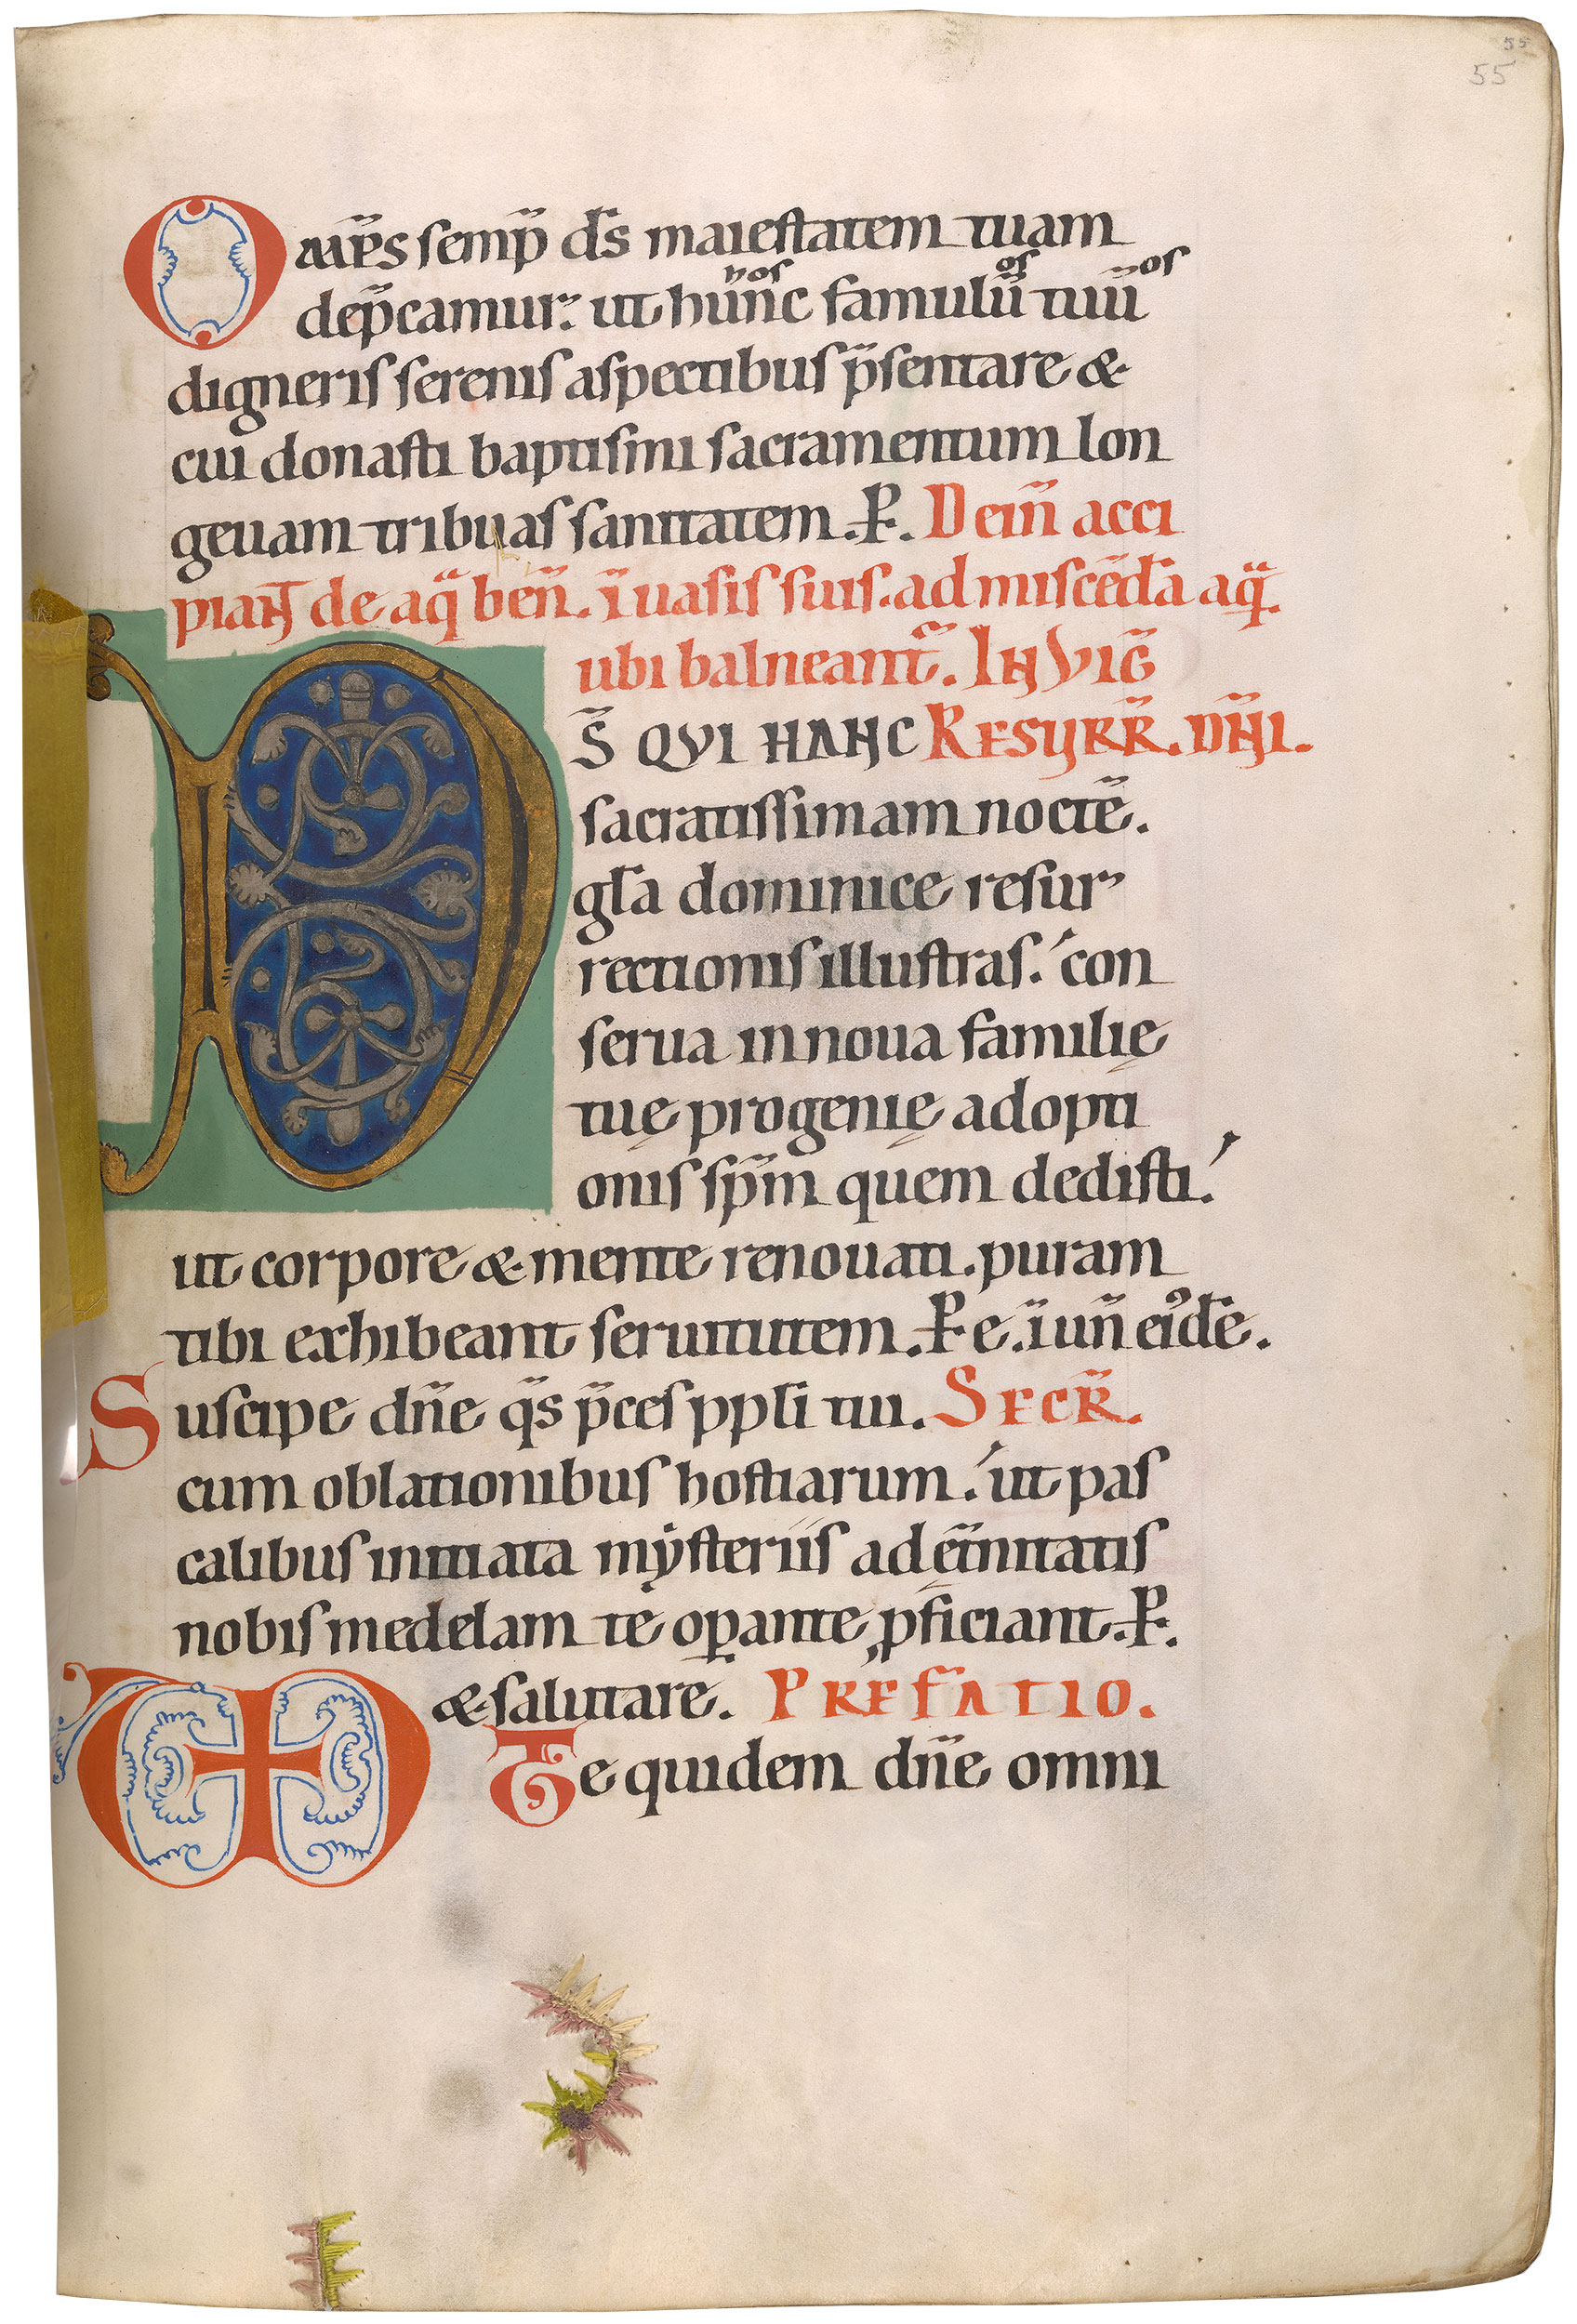 55
55
Om̅p̅s semp̅ d̅s maiestatem tuam
dep̅camur. ut hu̅n̅c famulu̅ tuu̅
nos os os
digneris serenis aspectibus p̅sentare &
cui donasti baptismi sacramentum lon
geuam tribuas sanitatem. P. Dein̅ acci
piant de aq̅ ben̅. i̅ uasis suis. ad misce̅da̅ aq̅.
ubi balneant̅. IN VIG̅
DS̅ QVI HANC RESURR̅. DN̅I.
sacratissimam nocte̅.
gl̅a dominice resur
rectionis illustras. con
serua in noua familię
tuę progenię adopti
onis sp̅m quem dedisti.
ut corpore & mente renouati. puram
tibi exhibeant seruitutem. P e. i̅ un̅ ei᾽de̅.
Suscipe dn̅e q̅s p̅ces ppl̅i tui. SECR̅.
cum oblationibus hostiarum. ut pas
calibus initiata mẏsteriis ad ęt̅nitatis
nobis medelam te op̲ante p̲ficiant. P.
& salutare. PREFATIO.
Te quidem dn̅e omni